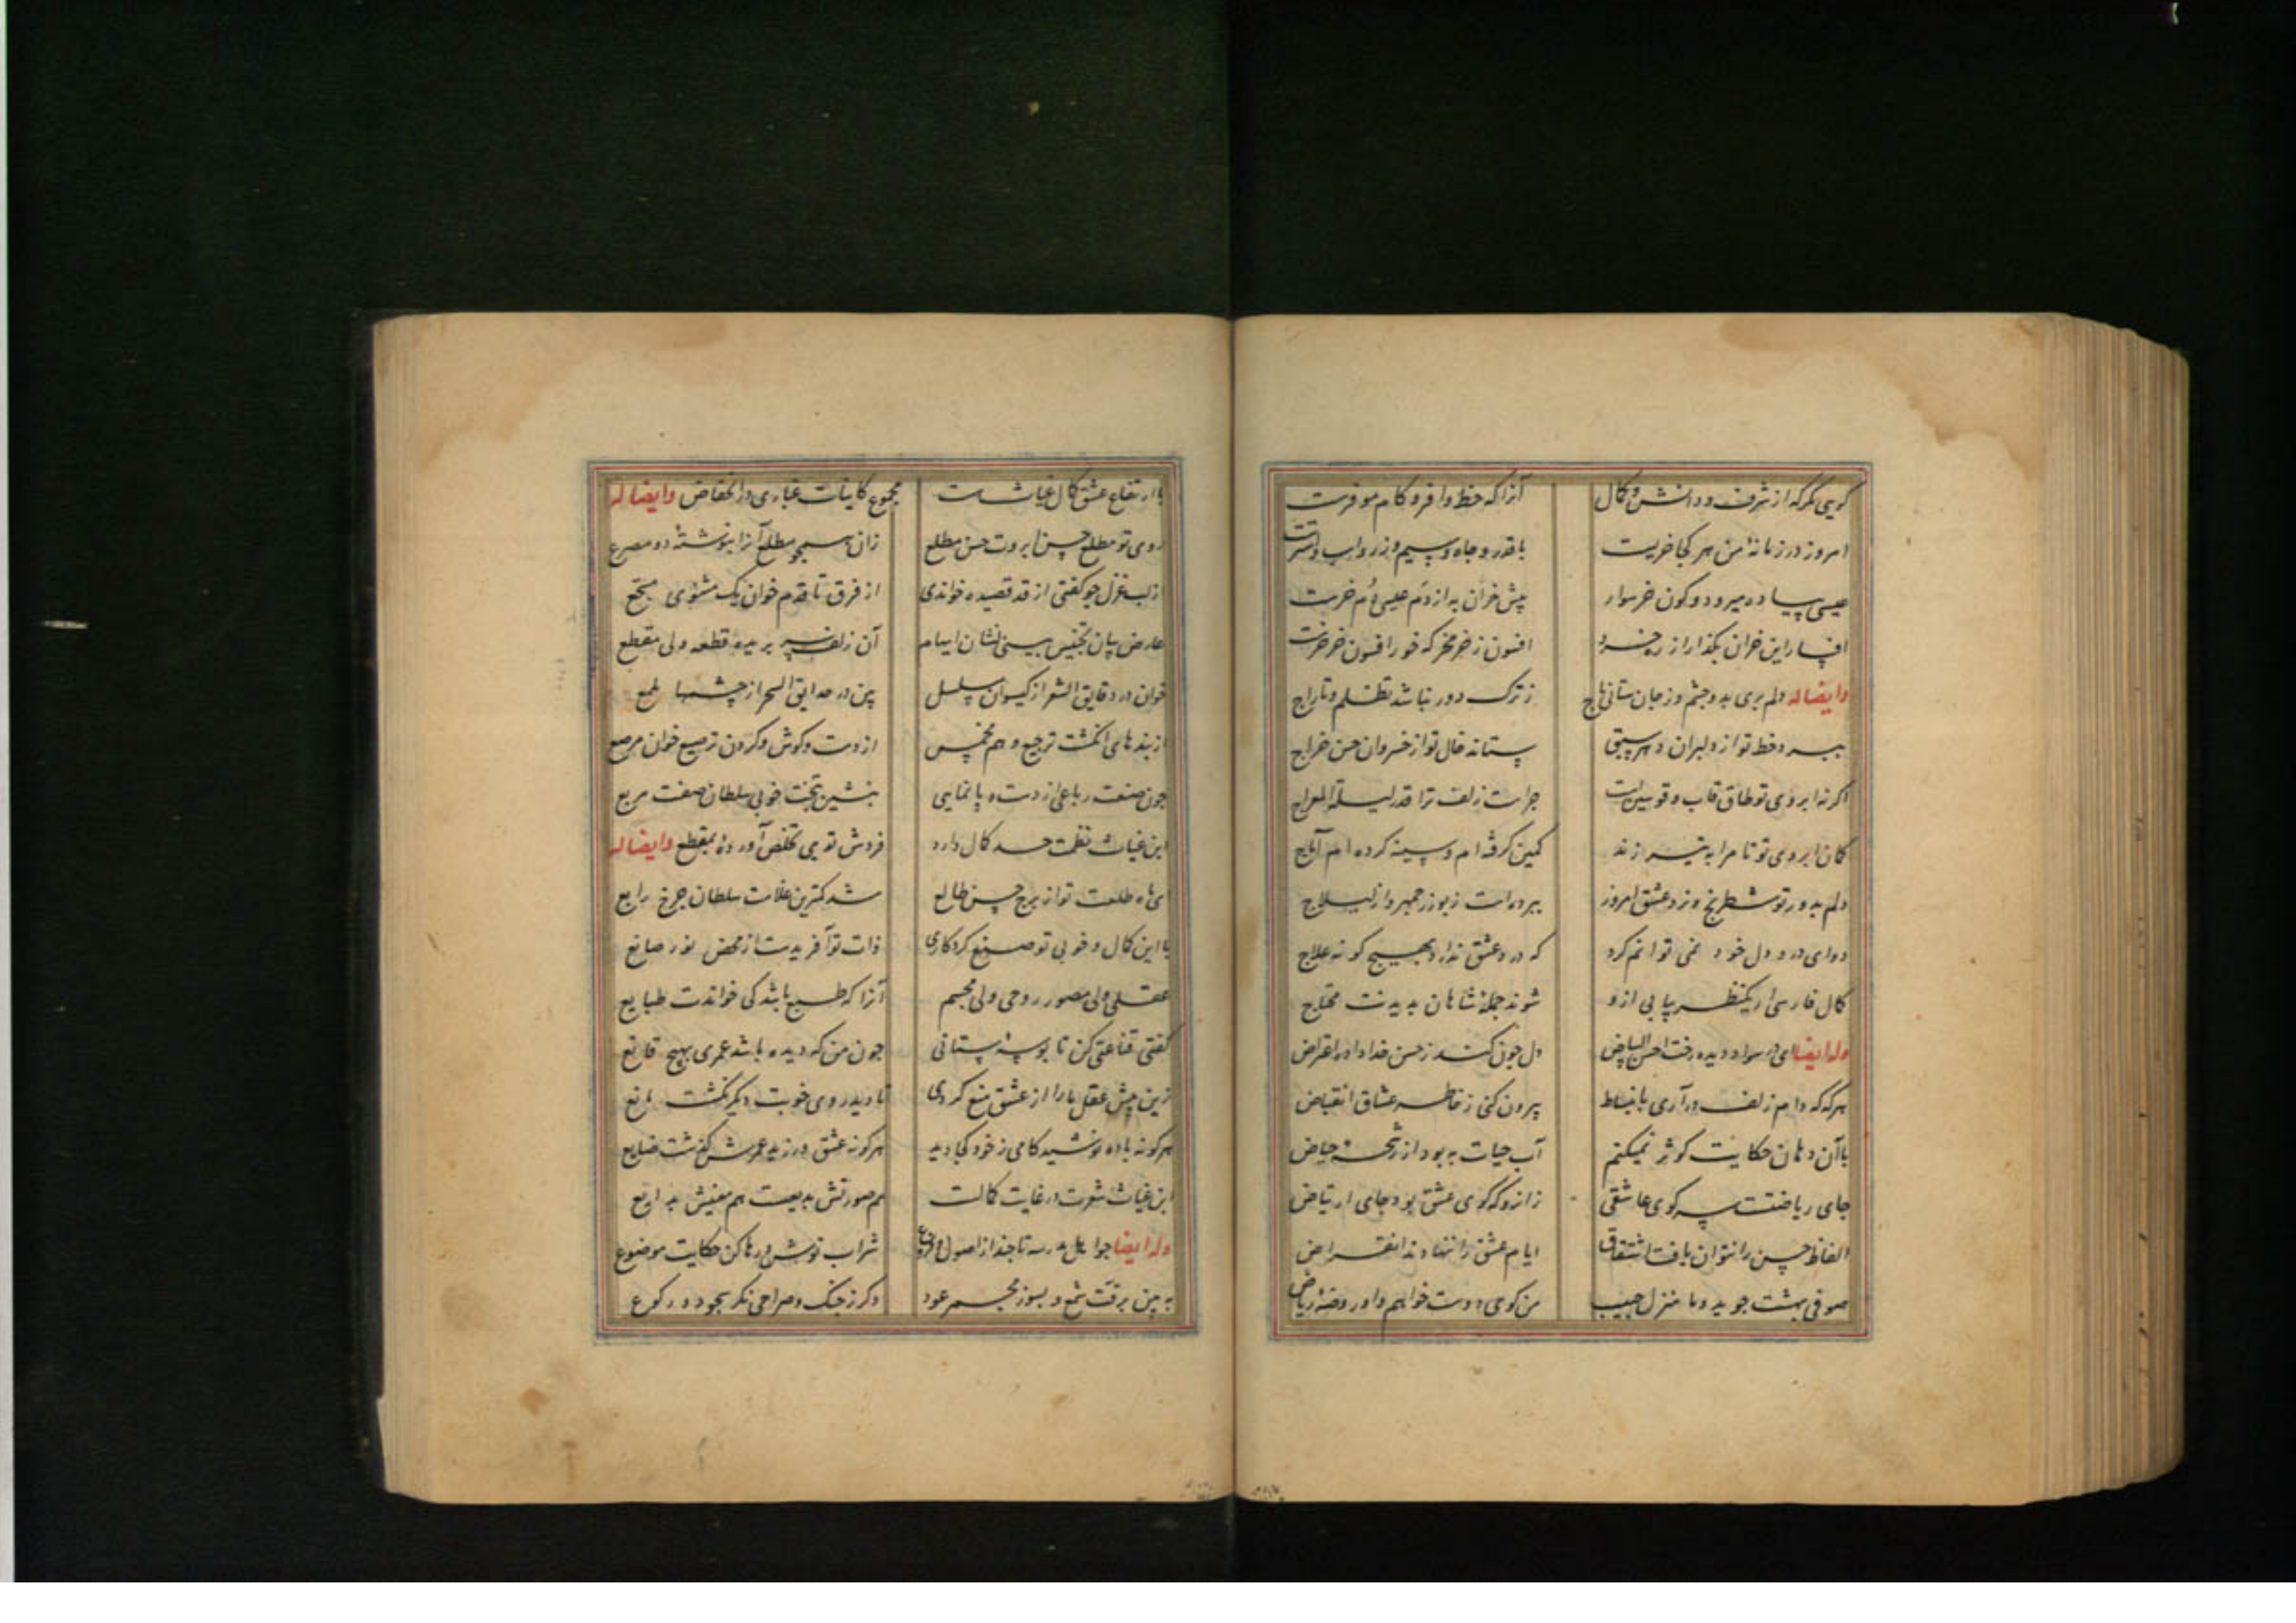 گویی مگر که از شرف و دانش و کمال آنرا که حظ وافر و کام موفرست
امروز در زمانهٔ من هر کجا خریست با قدر و جاه و سیم و زر و اسب و استرست
عیسی پیاده میرود و کون خر سوار پیش خران به از دم عیسی دم خرست
افسار این خران بگذار از ره خرد افسون ز خر مخر که خور افسون خر خرست
وایضا له دلم بری بدو چشم وز جان ستانی باج ز ترک دور نباشد تظلم و تاراج
ببرد خط تو از دلبران دهر سبق ستانه خال تو از خسروان حسن خراج
اگر نه ابروی تو طاق قاب و قوسین است چراست زلف ترا قدر لیلة المعراج
کمان ابروی تو تا مرا به تیر زند کمین گرفته ام و سینه کرده ام آماج
دلم بدور تو شطرنج و نرد عشق امروز ببرده است ز بوزرجمهر و از لیلاج
دوای درد دل خود نمی توانم کرد که درد عشق ندارد بهیچ گونه علاج
کمال فارسی ار یکنظر بیابی ازو شوند جملهٔ شاهان بدیدنت محتاج
وله ایضا ای در سواد دیده رخت احسن البیاض دل چون کند ز حسن خداداده اعراض
هرکه که دام زلف درآری بانبساط بیرون کنی ز خاطر عشاق انقباض
با آن دهان حکایت کوثر نمیکنم آب حیات به بود از رشحهٔ حیاض
جای ریاضتست سر کوی عاشقی زانرو که کوی عشق بود جای ارتیاض
الفاظ حسن را نتوان یافت اشتقاق ایام عشق را ننهادند انقراض
صوفی بهشت جوید و ما منزل حبیب من کوی دوست خواهم و او روضهٔ ریاض
با ارتفاع عشق کمال غیاث هست مجموع کاینات غباری در انخفاض وایضا له
روی تو مطلع حسن ابروت حسن مطلع زان سیم جو مطلع آنرا نوشته دو مصرع
از لب غزل چو گفتی از قد قصیده خواندی از فرق تا قدم خوان یک مثنوی مجمع
عارض بیان تجنیس بینی نشان ایهام آن زلف سر بریده قطعه ولی مقطع
خوان در دقایق الشعر از گیسوان مسلسل بین در حدایق السحر از چشمها ملمع
از بندهای انگشت ترجیع و هم مخمس از دست و گوش و گردن ترصیع خوان مرصع
چون صنعت رباعی از دست و پا نمایی بنشین بتخت خوبی سلطان صفت مربع
ابن غیاث نظمت حد کمال دارد فردش تویی تخلص آورده بمقطع وایضا له
ای ماه طلعت تو از برج حسن طالع شد کمترین غلامت سلطان چرخ رابع
با این کمال و خوبی تو صنع کردگاری ذات تو آفریدست از محض نور صانع
عقلی ولی مصور روحی ولی مجسم آنرا که طبع باشد کی خواندت طبایع
گفتی قناعتی کن تا بوسهٔ ستانی چون من که دیده باشد عمری بهیچ قانع
زین پیش عقل ما را از عشق منع کردی تا دید روی خوبت دیگر نگشت مانع
هرکو نه باده نوشید کامی ز خود کجا دید هرکو نه عشق ورزید عمرش گذشت ضایع
ابن غیاث شعرت در غایت کمالت هم صورتش بدیعست هم معنیش بدایع
وله ایضا چو اهل مدرسه تا چند از اصول و فروع شراب نوش و رها کن حکایت موضوع
ببین برقت شمع و بسوز مجمر عود دگر ز چنگ و صراحی نگر سجود و رکوع